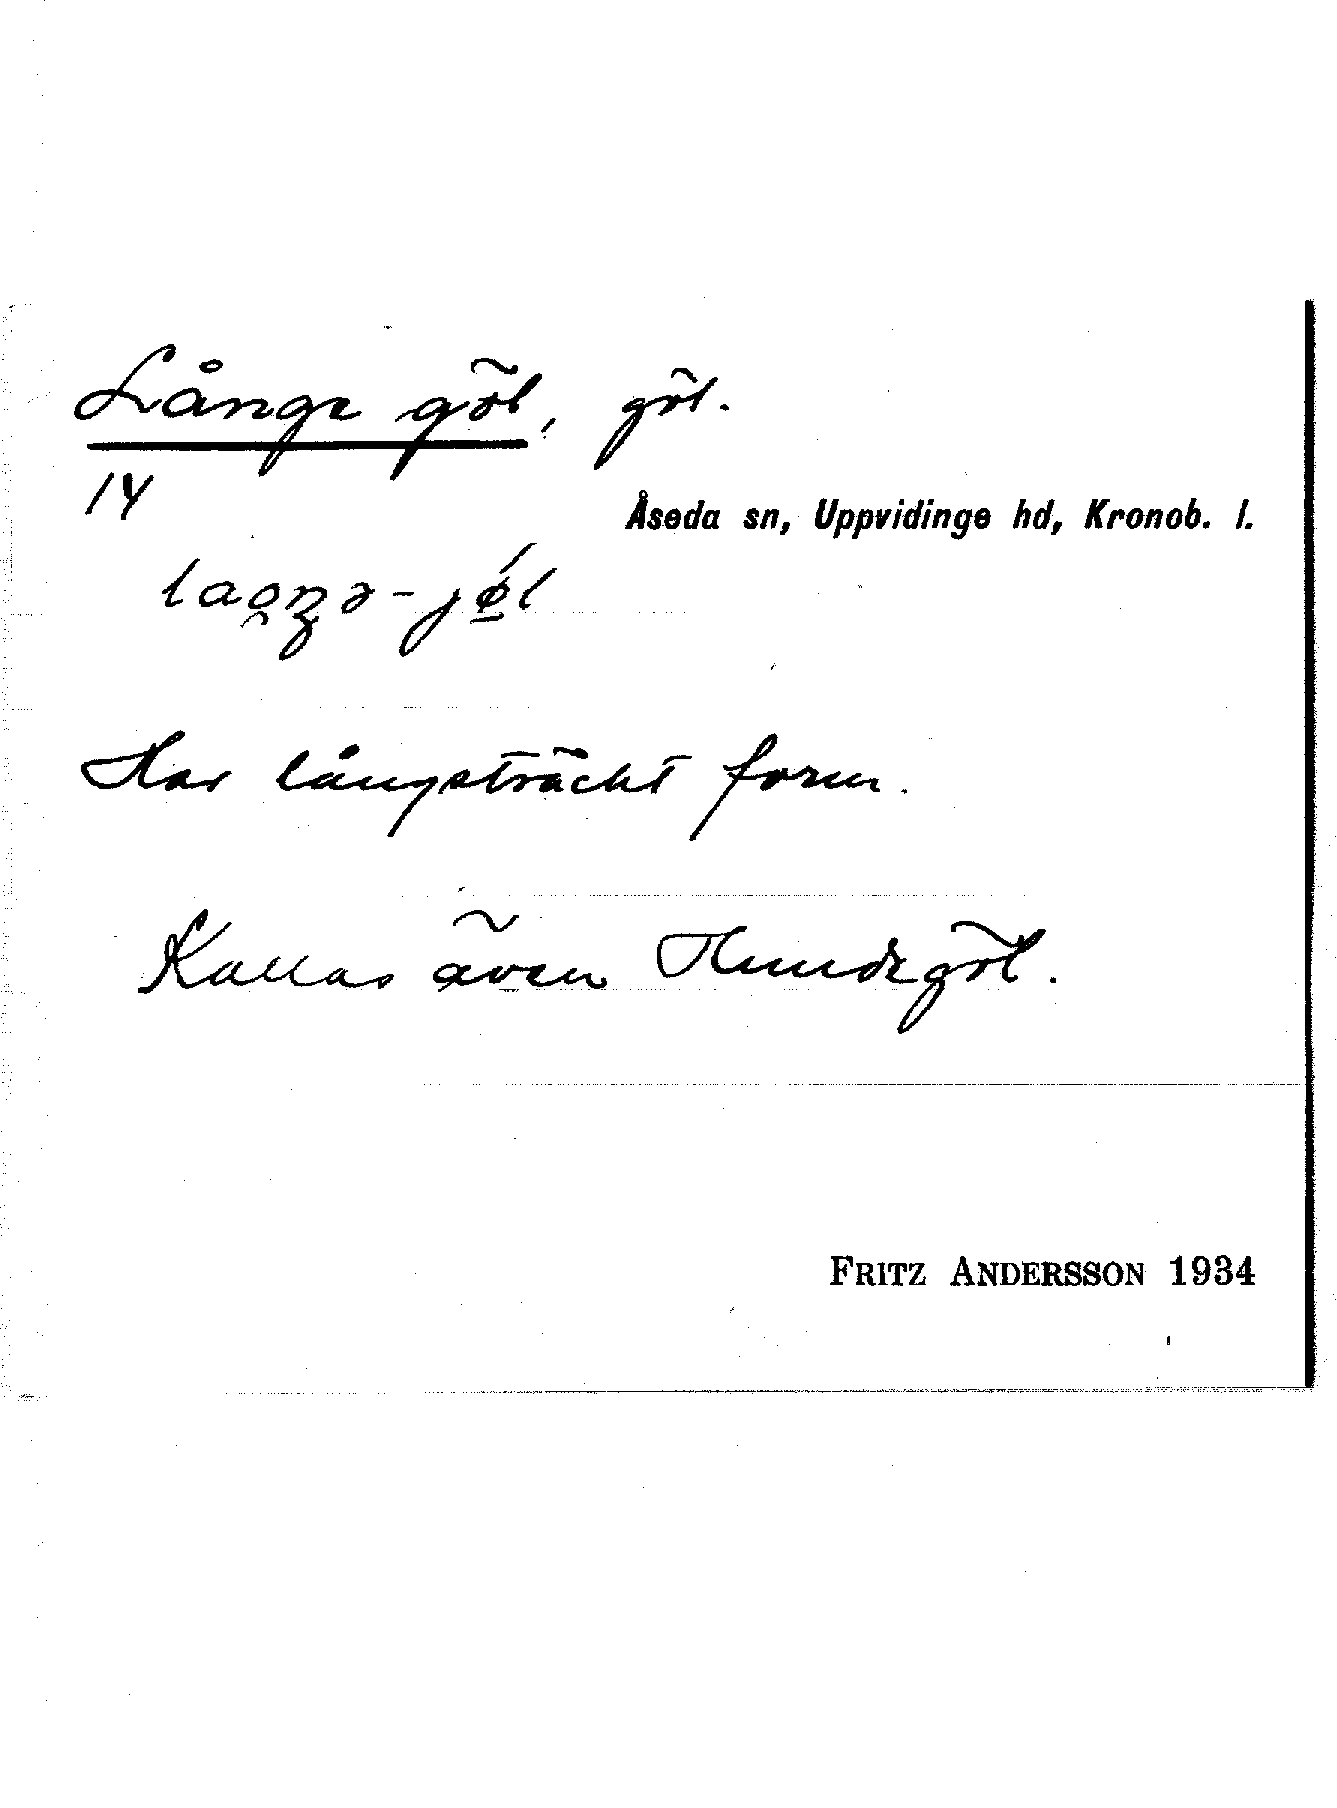 Långe göl, göl.
14
Åseda sn, Uppvidinge hd, Kronob. l.
lao̯ŋə-jǿ̱l
Har långsträckt form.
Kallas även Hundegöl.
FRITZ ANDERSSON 1934